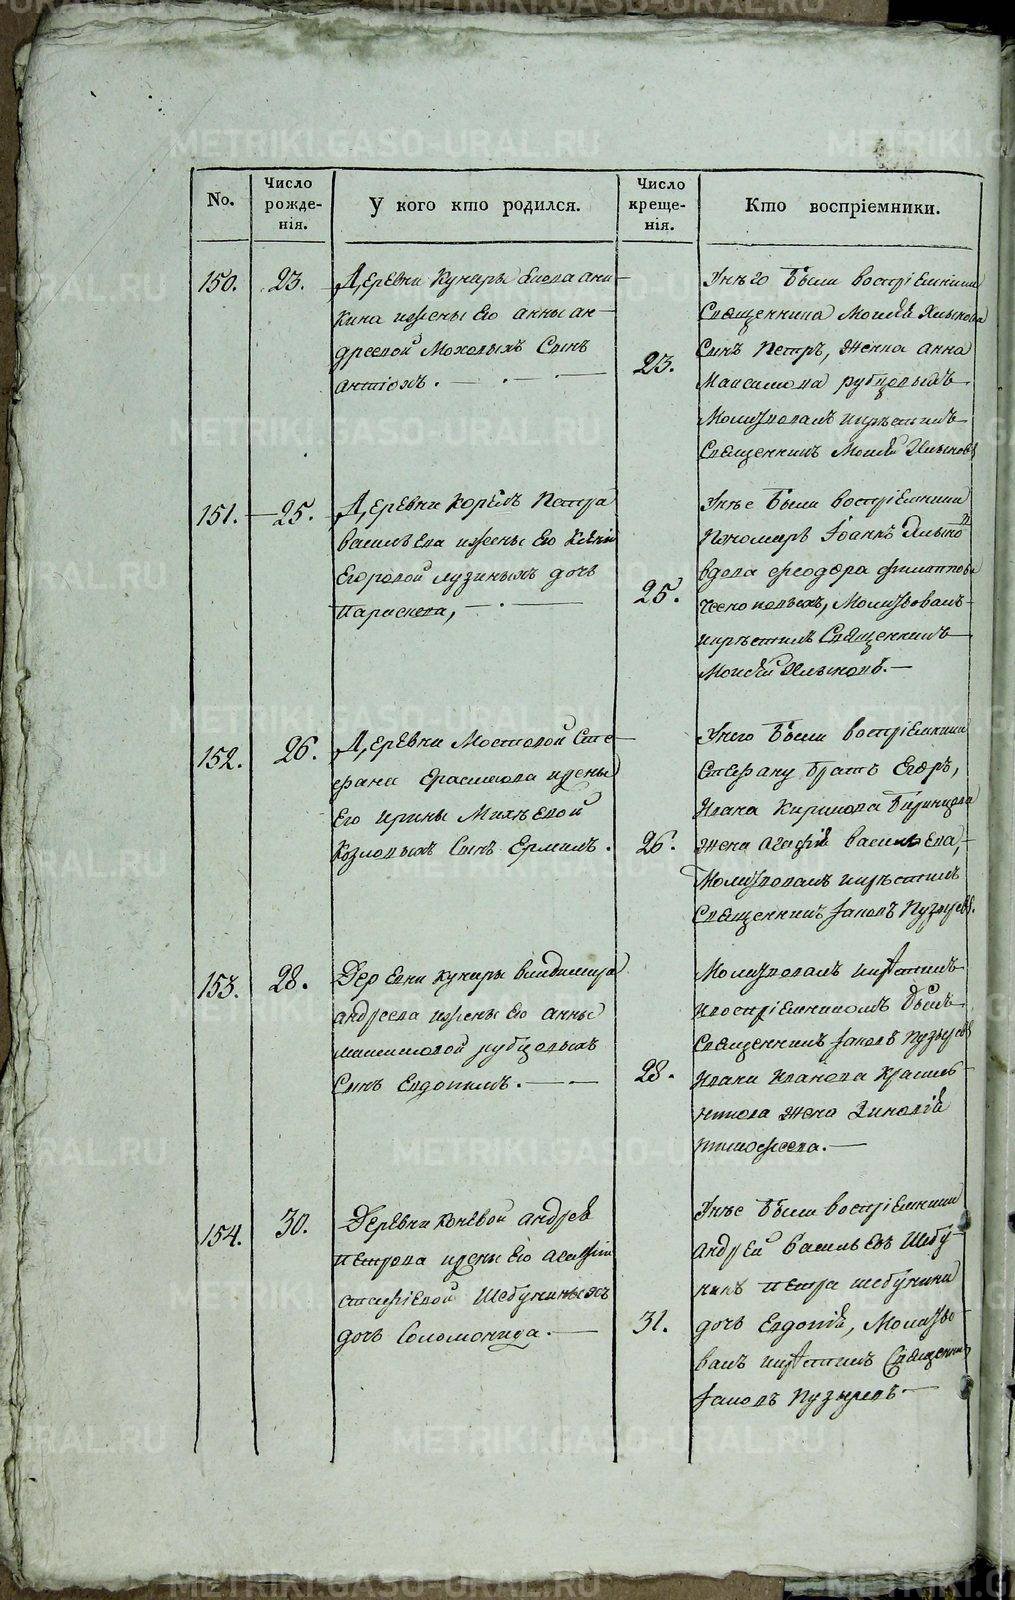 No.
Число рожде-нія.
У кого кто родился.
Число креще-нія.
Кто воспріемники.
150.
23.
Деревни Кунары
кина и жены Его Анны Ан-
дреевой Моховыхъ Сынъ
Антіохъ.
23.
У него были воспріемники
Священника Моисея Хлынова
Сынъ Петръ, жена Анна
Максимова рубцовыхъ
Молитвовалъ и крѣстилъ
Священникъ Моисей Хлыновъ
151.
25.
Деревни Корелъ Петра
Васильева и жены Его
Егоровой лузиныхъ дочь
Параскева,
25.
У нее были воспріемники
Пономарь Іоаннъ Хлыно
вдова Феодора филиппова
Молитвовалъ
и крѣстилъ Священникъ
Моисей Хлыновъ.
152.
26.
Деревни Мостовой Сте-
фана Герасимова и жены
Его Ирины Михѣевой
Козловыхъ Сынъ Ермилъ.
26.
У него были воспріемники
Стефану братъ Егоръ,
Ивана Кирилова
жена Агафія Васильева,
Молитвовалъ и крѣстилъ
Священникъ Іаковъ Пузыревъ.
153.
28.
Деревни Кунары Владимира
Андреева и жены Его Анны
рубцовыхъ
Сынъ Евдокимъ.
28.
Молитвовалъ и крѣстилъ
и воспріемникомъ былъ
Священникъ Іаковъ Пузыревъ
Ивана Иванова Красиль-
никова жена Зиновія
Тимофеева.
154.
30.
Деревни Коневой Андрея
Петрова и жены Его Агафіи
Шебуниныхъ
дочь Соломонида.
31.
У нее были воспріемники
Андрей Васильевъ Шебу-
нинъ Петра Шебунина
дочь Евдокія, Молитво-
валъ и крѣстилъ Священникъ
Іаковъ Пузыревъ
METRIKI.GASO-URAL.RU